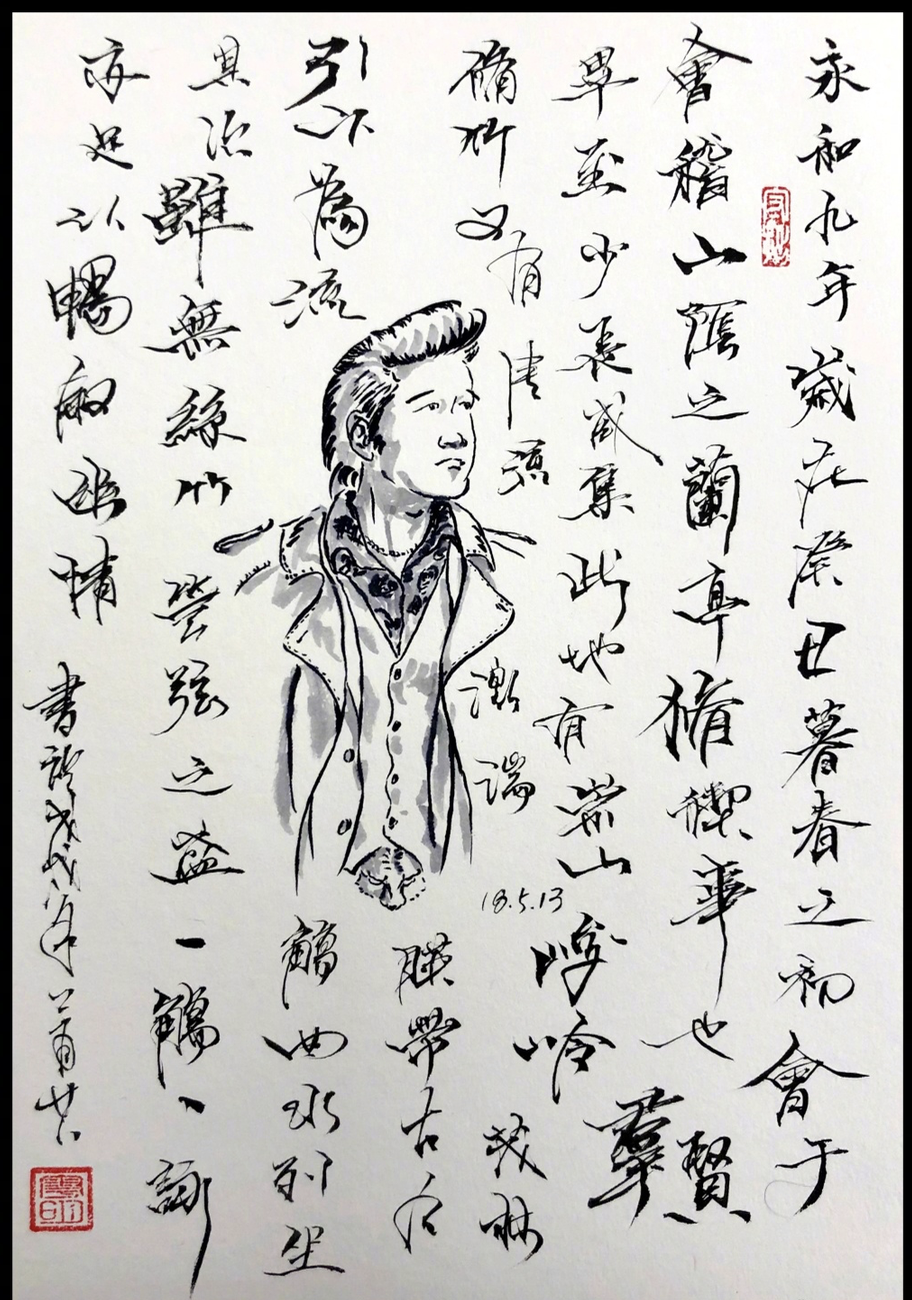 永和九年歲在癸丑暮春之初會于
會稽山陰之蘭亭脩禊事也羣賢
畢至少長咸集此地有崇山峻嶺茂林
脩竹又有清流激湍
18.5.13
映帶左右
引以為流觴曲水列坐
其次雖無絲竹管弦之盛一觴一詠
亦足以暢敘幽情
書於戊戌年